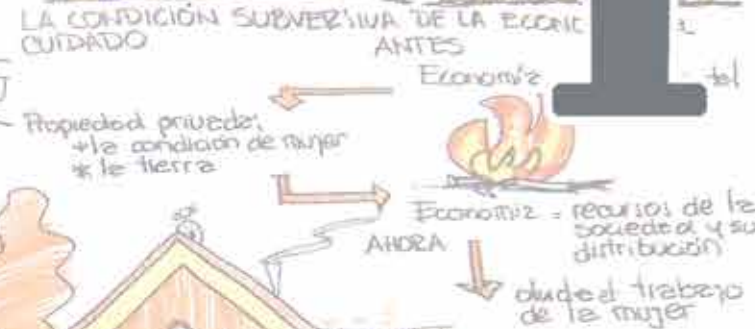 LA CONDICIÓN SUBVERSIVA DE LA ECONO
CUIDADO
ANTES
Economía
tal
- Propiedad privada:
*la condición de mujer
* la tierra
Economía = recursos de la
sociedad y su
distribución
AHORA
elude el trabajo
de la mujer